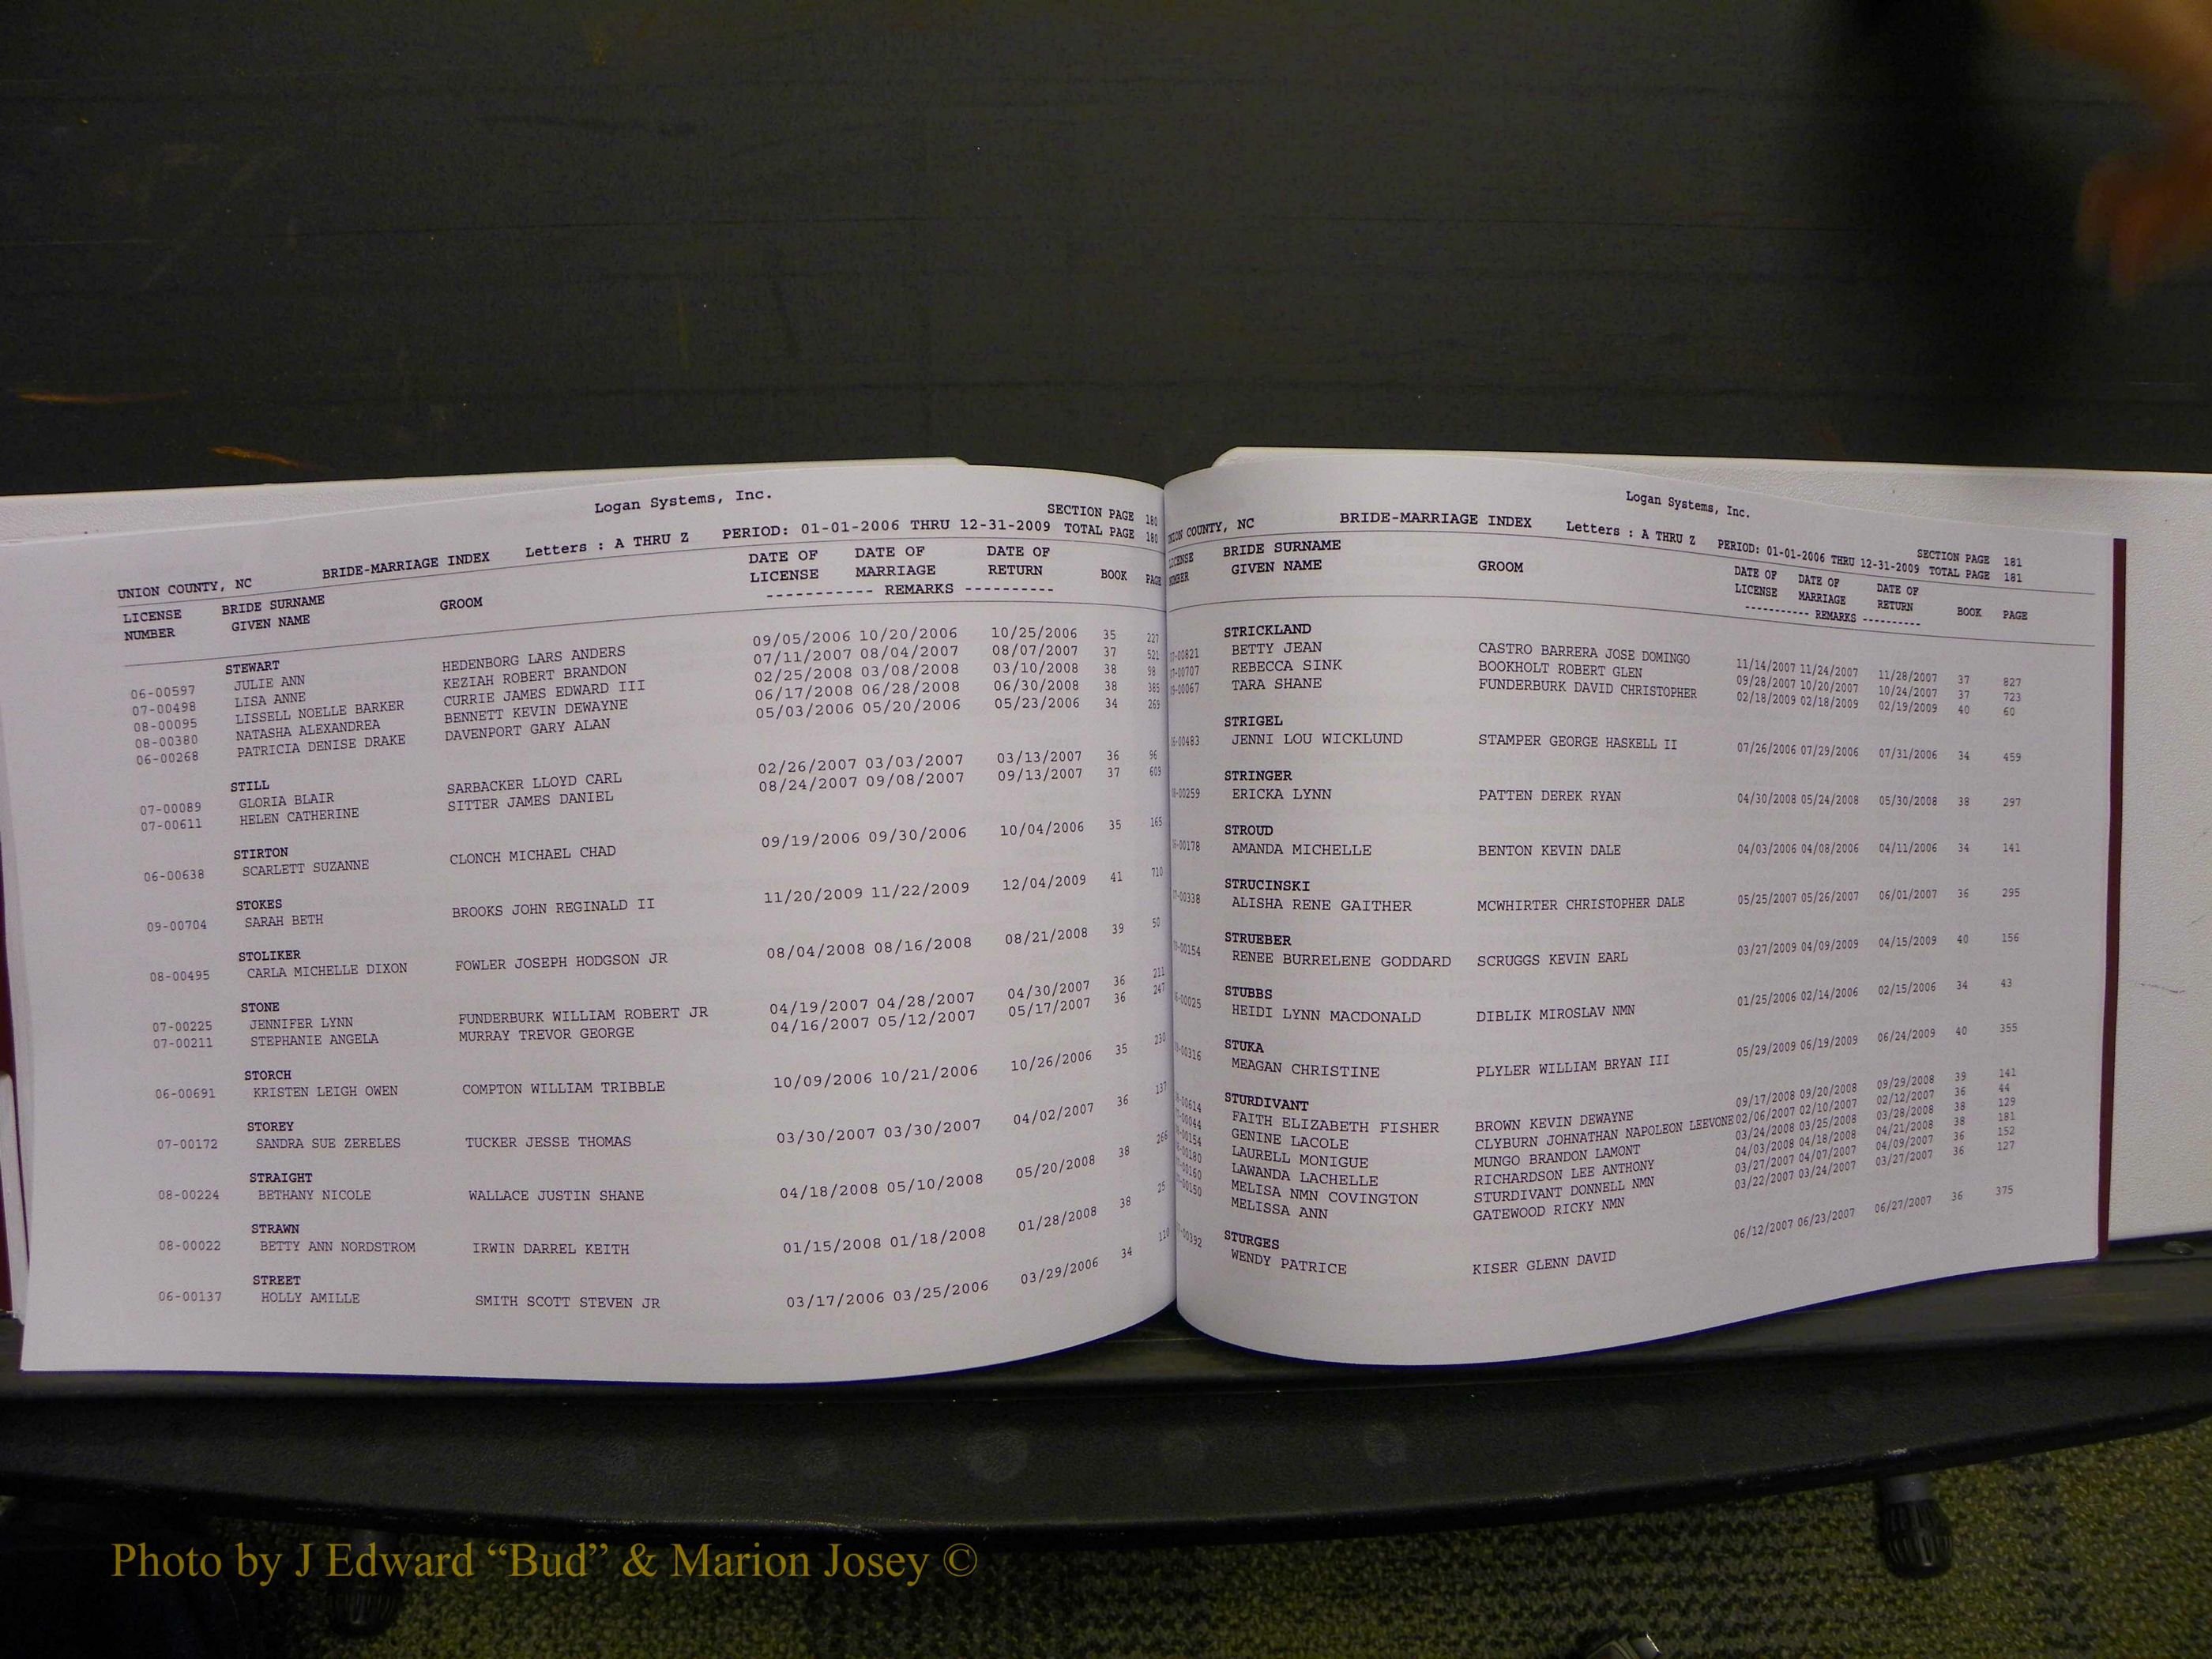 Logan Systems, Inc.
SECTION PAGE 180
UNION COUNTY, NC BRIDE-MARRIAGE INDEX Letters : A THRU Z PERIOD: 01-01-2006 THRU 12-31-2009 TOTAL PAGE 180
LICENSE BRIDE SURNAME GROOM DATE OF DATE OF DATE OF
NUMBER GIVEN NAME LICENSE MARRIAGE RETURN BOOK PAGE
----------- REMARKS ----------
STEWART
06-00597 JULIE ANN HEDENBORG LARS ANDERS 09/05/2006 10/20/2006 10/25/2006 35 227
07-00498 LISA ANNE KEZIAH ROBERT BRANDON 07/11/2007 08/04/2007 08/07/2007 37 521
08-00095 LISSELL NOELLE BARKER CURRIE JAMES EDWARD III 02/25/2008 03/08/2008 03/10/2008 38 98
08-00380 NATASHA ALEXANDREA BENNETT KEVIN DEWAYNE 06/17/2008 06/28/2008 06/30/2008 38 385
06-00268 PATRICIA DENISE DRAKE DAVENPORT GARY ALAN 05/03/2006 05/20/2006 05/23/2006 34 269
STILL
07-00089 GLORIA BLAIR SARBACKER LLOYD CARL 02/26/2007 03/03/2007 03/13/2007 36 96
07-00611 HELEN CATHERINE SITTER JAMES DANIEL 08/24/2007 09/08/2007 09/13/2007 37 609
STIRTON
06-00638 SCARLETT SUZANNE CLONCH MICHAEL CHAD 09/19/2006 09/30/2006 10/04/2006 35 165
STOKES
09-00704 SARAH BETH BROOKS JOHN REGINALD II 11/20/2009 11/22/2009 12/04/2009 41 710
STOLIKER
08-00495 CARLA MICHELLE DIXON FOWLER JOSEPH HODGSON JR 08/04/2008 08/16/2008 08/21/2008 39 50
STONE
07-00225 JENNIFER LYNN FUNDERBURK WILLIAM ROBERT JR 04/19/2007 04/28/2007 04/30/2007 36 211
07-00211 STEPHANIE ANGELA MURRAY TREVOR GEORGE 04/16/2007 05/12/2007 05/17/2007 36 247
STORCH
06-00691 KRISTEN LEIGH OWEN COMPTON WILLIAM TRIBBLE 10/09/2006 10/21/2006 10/26/2006 35 230
STOREY
07-00172 SANDRA SUE ZERELES TUCKER JESSE THOMAS 03/30/2007 03/30/2007 04/02/2007 36 137
STRAIGHT
08-00224 BETHANY NICOLE WALLACE JUSTIN SHANE 04/18/2008 05/10/2008 05/20/2008 38 266
STRAWN
08-00022 BETTY ANN NORDSTROM IRWIN DARREL KEITH 01/15/2008 01/18/2008 01/28/2008 38 25
STREET
06-00137 HOLLY AMILLE SMITH SCOTT STEVEN JR 03/17/2006 03/25/2006 03/29/2006 34 110
Logan Systems, Inc.
SECTION PAGE 181
UNION COUNTY, NC BRIDE-MARRIAGE INDEX Letters : A THRU Z PERIOD: 01-01-2006 THRU 12-31-2009 TOTAL PAGE 181
LICENSE BRIDE SURNAME GROOM DATE OF DATE OF DATE OF
GIVEN NAME LICENSE MARRIAGE RETURN BOOK PAGE
----------- REMARKS ----------
STRICKLAND
07-00821 BETTY JEAN CASTRO BARRERA JOSE DOMINGO 11/14/2007 11/24/2007 11/28/2007 37 827
07-00707 REBECCA SINK BOOKHOLT ROBERT GLEN 09/28/2007 10/20/2007 10/24/2007 37 723
09-00067 TARA SHANE FUNDERBURK DAVID CHRISTOPHER 02/18/2009 02/18/2009 02/19/2009 40 60
STRIGEL
-00483 JENNI LOU WICKLUND STAMPER GEORGE HASKELL II 07/26/2006 07/29/2006 07/31/2006 34 459
STRINGER
-00259 ERICKA LYNN PATTEN DEREK RYAN 04/30/2008 05/24/2008 05/30/2008 38 297
STROUD
-00178 AMANDA MICHELLE BENTON KEVIN DALE 04/03/2006 04/08/2006 04/11/2006 34 141
STRUCINSKI
-00338 ALISHA RENE GAITHER MCWHIRTER CHRISTOPHER DALE 05/25/2007 05/26/2007 06/01/2007 36 295
STRUEBER
-00154 RENEE BURRELENE GODDARD SCRUGGS KEVIN EARL 03/27/2009 04/09/2009 04/15/2009 40 156
STUBBS
-00025 HEIDI LYNN MACDONALD DIBLIK MIROSLAV NMN 01/25/2006 02/14/2006 02/15/2006 34 43
STUKA
-00316 MEAGAN CHRISTINE PLYLER WILLIAM BRYAN III 05/29/2009 06/19/2009 06/24/2009 40 355
STURDIVANT
-00614 FAITH ELIZABETH FISHER BROWN KEVIN DEWAYNE 09/17/2008 09/20/2008 09/29/2008 39 141
-00044 GENINE LACOLE CLYBURN JOHNATHAN NAPOLEON LEEVONE 02/06/2007 02/10/2007 02/12/2007 36 44
-00154 LAURELL MONIGUE MUNGO BRANDON LAMONT 03/24/2008 03/25/2008 03/28/2008 38 129
-00180 LAWANDA LACHELLE RICHARDSON LEE ANTHONY 04/03/2008 04/18/2008 04/21/2008 38 181
-00160 MELISA NMN COVINGTON STURDIVANT DONNELL NMN 03/27/2007 04/07/2007 04/09/2007 36 152
-00150 MELISSA ANN GATEWOOD RICKY NMN 03/22/2007 03/24/2007 03/27/2007 36 127
STURGES
-00392 WENDY PATRICE KISER GLENN DAVID 06/12/2007 06/23/2007 06/27/2007 36 375
Photo by J Edward “Bud” & Marion Josey ©